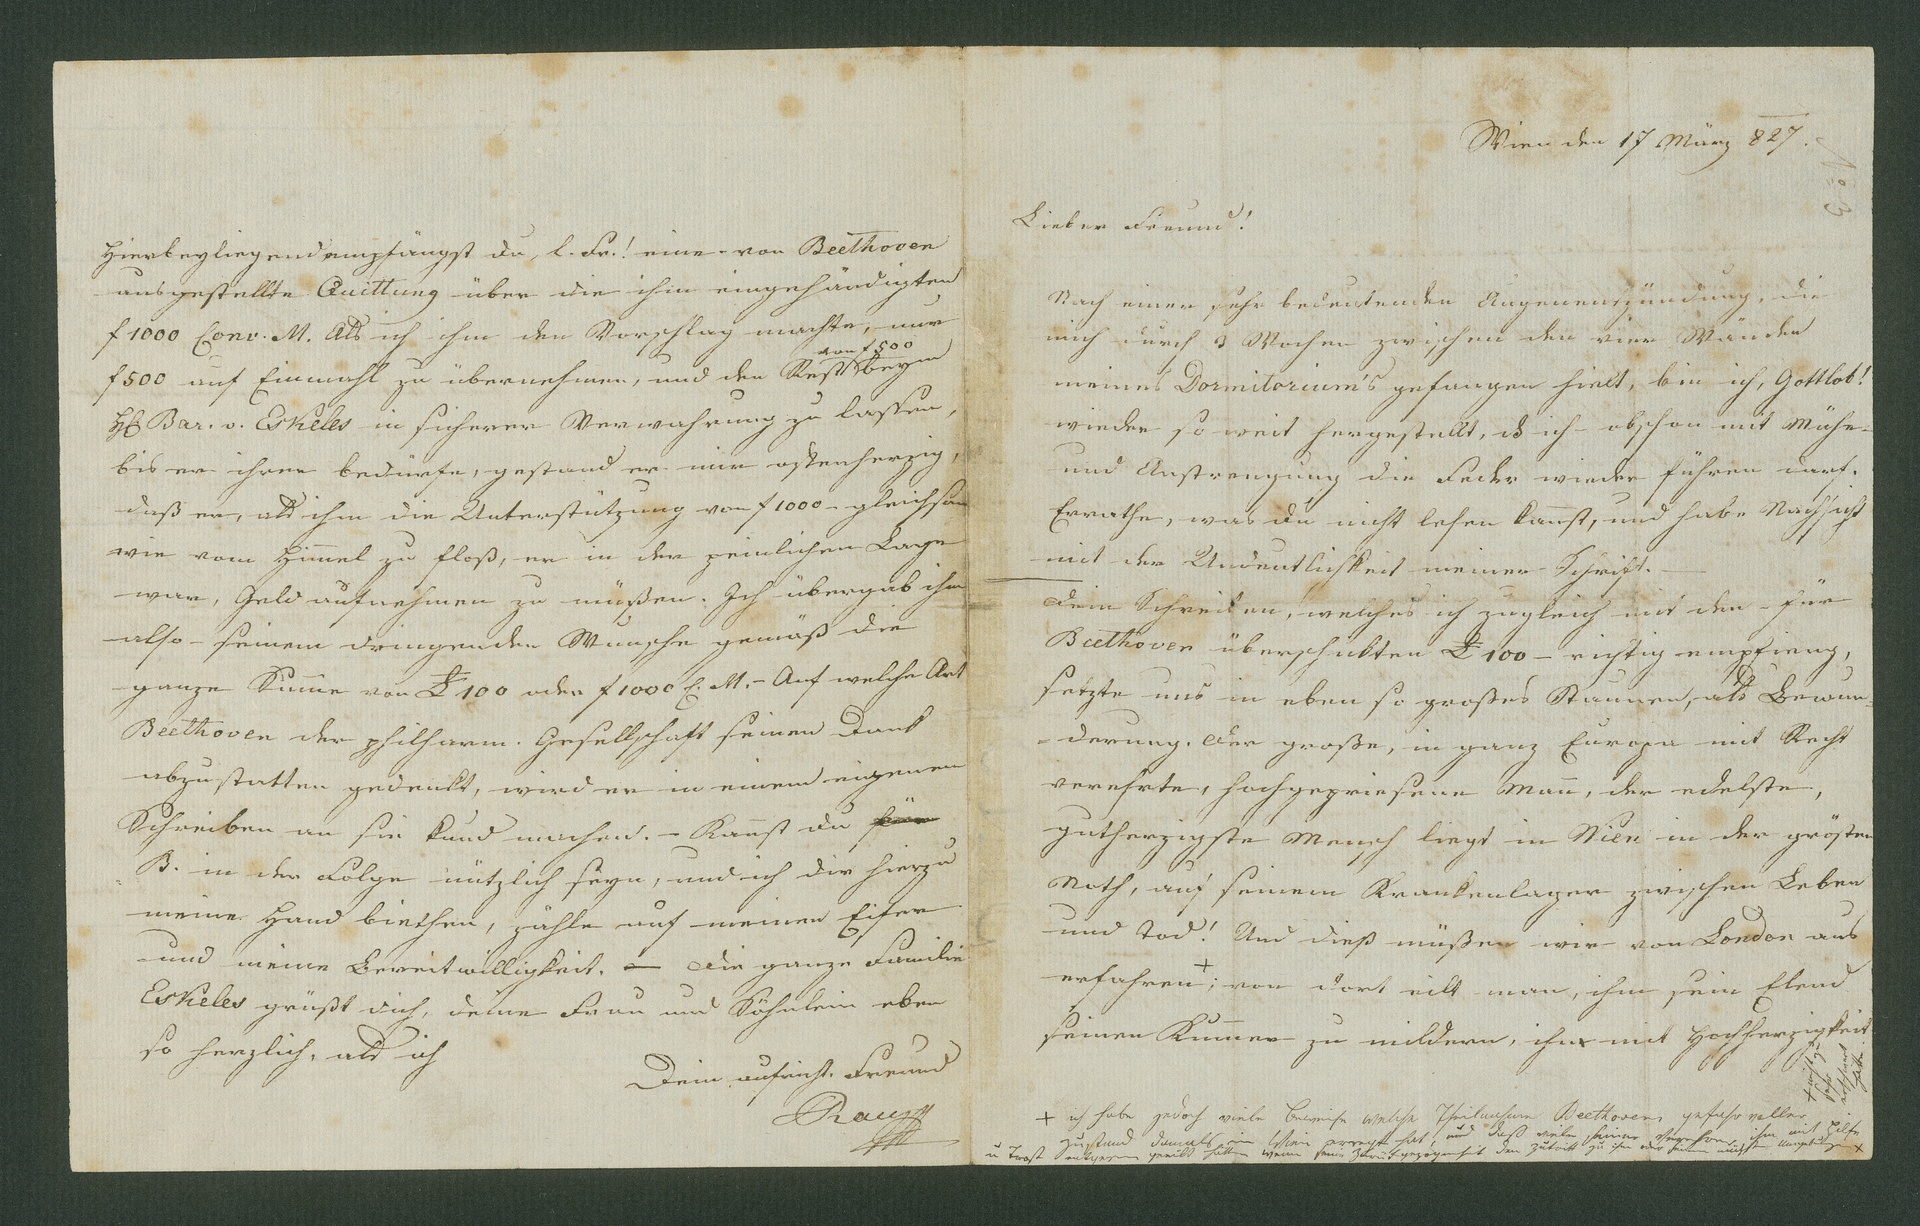 Wien den 17 März 827.
No 3
Lieber Freund!
Nach einer sehr bedeutenden Augenentzündung, die
mich durch 3 Wochen zwischen den vier Wänden
meines Dormitorium's gefangen hielt, bin ich, Gottlob!
wieder so weit hergestellt, ich obschon mit Mühe
und Anstrengung die Feder wieder führen darf.
Errathe, was du nicht lesen kannst, und habe Nachsicht
mit der Undeutlichkeit meiner Schrift. —
Dein Schreiben, welches ich zugleich mit den – für
Beethoven überschickten ₤ 100 – richtig empfieng,
setzte uns in eben so großes Staunen, als Bewun-
-derung. Der große, in ganz Europa mit Recht
verehrte, hochgepriesene Mann, der edelste,
gutherzigste Mensch liegt in Wien in der grösten
Noth, auf seinem Krankenlager zwischen Leben
und Tod! Und dieß müßen wir von London aus
erfahren +; von dort eilt man, ihm sein Elend
seinen Kummer zu mildern, ihn mit Hochherzigkeit
+ ich habe jedoch viele Beweise welche Theilnahme Beethovens gefahrvoller
Zustand damals in Wien erregt hat, und daß viele seiner Verehrer ihm mit Hilfe
u Trost geeilt hätten wenn seine Zurückgezogenheit den Zutritt zu ihm
Hierbeyliegend empfängst du, l. Fr.! eine von Beethoven
ausgestellte Quittung über die ihm eingehändigten
f 1000 Conv. M. Als ich ihm den Vorschlag machte, nur
f 500 auf Einmahl zu übernehmen, und den Rest von f 500 beym
H. Bar. v. Eskeles in sicherer Verwahrung zu lassen,
bis er ihrer bedürfe, gestand er mir offenherzig,
daß er, als ihm die Unterstützung von f 1000 – gleichsam
wie vom Himmel zu floß, er in der peinlichen Lage
war, Geld aufnehmen zu müßen. Ich übergab ihm
also – seinem dringenden Wunsche gemäß die
ganze Summe von ₤ 100 oder f 1000 C. M. – Auf welche Art
Beethoven der philharm. Gesellschaft seinen Dank
abzustatten gedenkt, wird er in einem eigenen
Schreiben an sie kund machen. – Kannst du für
B. in der Folge nützlich seyn, und ich dir hierzu
meine Hand biethen, zähle auf meinen Eifer
und meine Bereitwilligkeit. — Die ganze Familie
Eskeles grüßt dich, deine Frau und Söhnlein eben
so herzlich, als ich
Dein aufricht. Freund
Rau